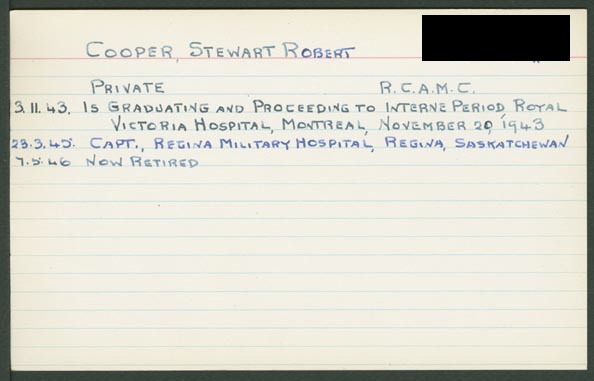 COOPER, STEWART ROBERT
PRIVATE R.C.A.M.C.
3.11.43. IS GRADUATING AND PROCEEDING TO INTERNE PERIOD, ROYAL
VICTORIA HOSPITAL, MONTREAL, NOVEMBER 20, 1943
23.3.45. CAPT., REGINA MILITARY HOSPITAL, REGINA, SASKATCHEWAN
7.5.46 NOW RETIRED